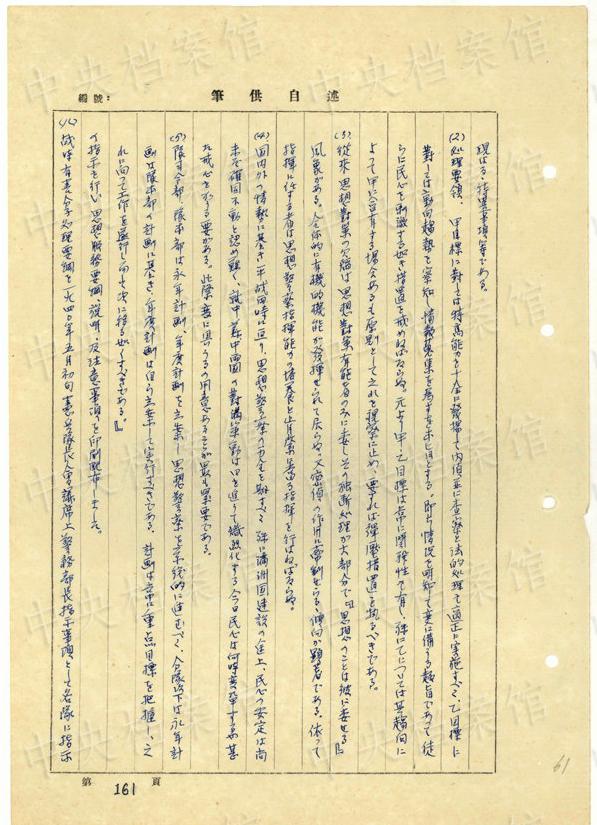 編號：
筆供自述
現はる、特異事項等である。
(2)処理要領、甲目標に対しては特高能力を十全に発揚して内偵並に査察と法的処理を適正に実施すべく、乙目標に
対しては動向趨勢を察知し情報蒐集を為すを本旨とする。即ち情況を明知して変に備うる趣旨であって徒
らに民心を刺戟する如き措置を戒めねばならぬ。元より甲、乙目標は常に関聯性を有し殊に乙については其趨向に
よって甲に含有する場合あるも原則として之れを視察に止め、要すれば弾圧措置を執るべきである。
(3)従来思想対策の欠陥は思想対策有能者のみに委し、その独断処理が大部分で『思想のことは彼に委せる』
風衆がある。全体的に有機的機能が発揮せられて居らぬ。又密偵の作用に牽制せらる、傾向が顕著である。依って
指揮に任ずる者は思想警察指揮能力の培養と正常奨善なる指揮を行はねばならぬ。
(4)国内外の情勢に基き、平戦両時に亘り、思想警察の万全を期すべく、殊に満洲国建設の途上、民心の安定は尚
未だ確固不動と認め難く、就中蘇中両国の対満策動は日を追うて熾烈化する今日民心は何時変奔するか甚
だ戒心を要する要がある。此際変に具うるの用意あることが最も緊要である。
(5)隊司令部、隊本部は永年計画、年度計画を立案し、思想警察を系統的に進むべく、分隊以下は永年計
画は隊本部の計画に基き、年度計画は自ら立案して実行すべきである。計画は常に重点目標を把握し、之
れに向って工作を遂行し尚も次に移る如くすべきである。』
の指示を行い、思想服務要綱、説明、及注意事項を印刷配布しました。
(八)戦時有害分子処理要綱を一九四〇年五月初旬憲兵隊長会議席上警務部長指示事項として各隊に指示
第161頁
61
中央档案馆